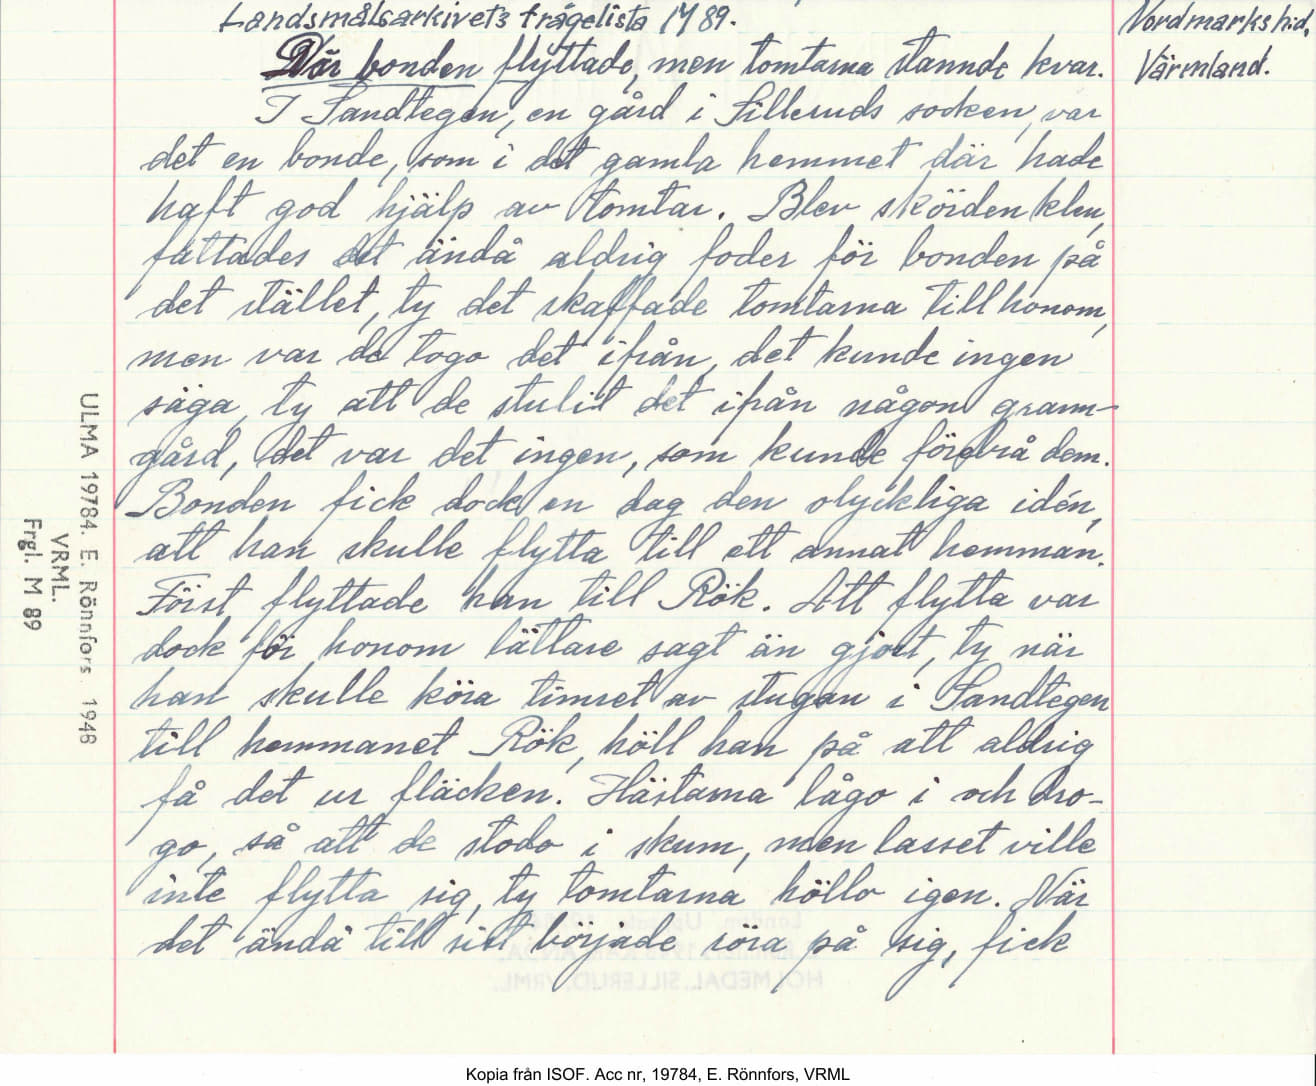 Landsmålsarkivets frågelista M 89.
Nordmarks hd,
Värmland.
När bonden flyttade, men tomtarna stannde kvar.
I Sandtegen, en gård i Silleruds socken, var
det en bonde, som i det gamla hemmet där hade
haft god hjälp av tomtar. Blev skörden klen,
fattades det ändå aldrig foder för bonden på
det stället, ty det skaffade tomtarna till honom,
men var de togo det ifrån, det kunde ingen
säga, ty att de stulit det ifrån någon grann-
gård, det var det ingen, som kunde förebrå dem.
Bonden fick dock en dag den olyckliga idén,
att han skulle flytta till ett annat hemman.
Först flyttade han till Rök. Att flytta var
dock för honom lättare sagt än gjort, ty när
han skulle köra timret av stugan i Sandtegen
till hemmanet Rök, höll han på att aldrig
få det ur fläcken. Hästarna lågo i och dro-
go, så att de stodo i skum, men lasset ville
inte flytta sig, ty tomtarna höllo igen. När
det ändå till sist började röra på sig, fick
ULMA 19784. E. Rönnfors 1946
VRML.
Frgl. M 89
HOLMEDAL, SILLERUD, VRML.
Kopia från ISOF. Acc nr, 19784, E. Rönnfors, VRML